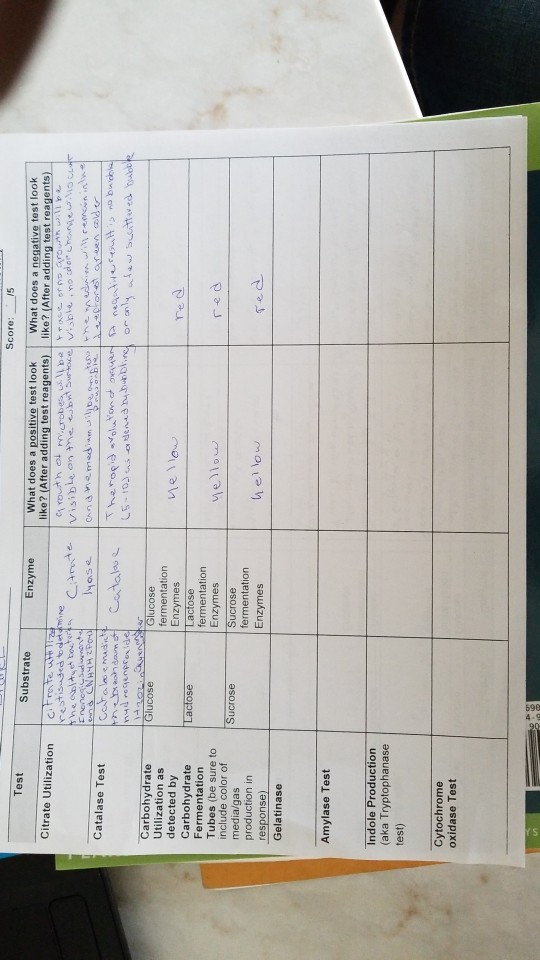 Score: __/5
Test
Substrate
Enzyme
What does a positive test look
like? (After adding test reagents)
What does a negative test look
like? (After adding test reagents)
Citrate Utilization
citrate utiliza
test is used to determine
the ability of bacteria
Citrate
lyase
growth of microbes will be
visible on the surface
and the medium will be
trace or no growth will be
visible, no color change will occur
the medium will remain in the
deep forest green color
Catalase Test
Catalase mediate
the breakdown of
hydrogen peroxide
Catalase
The rapid evolution of oxygen
(5-10s) as evidenced by bubbling
A negative result is no bubble
or only a few scattered bubble
Carbohydrate
Utilization as
detected by
Carbohydrate
Fermentation
Tubes (be sure to
include color of
media/gas
production in
response)
Glucose
Glucose
fermentation
Enzymes
yellow
red
Lactose
Lactose
fermentation
Enzymes
yellow
red
Sucrose
Sucrose
fermentation
Enzymes
yellow
red
Gelatinase
Amylase Test
Indole Production
(aka Tryptophanase
test)
Cytochrome
oxidase Test